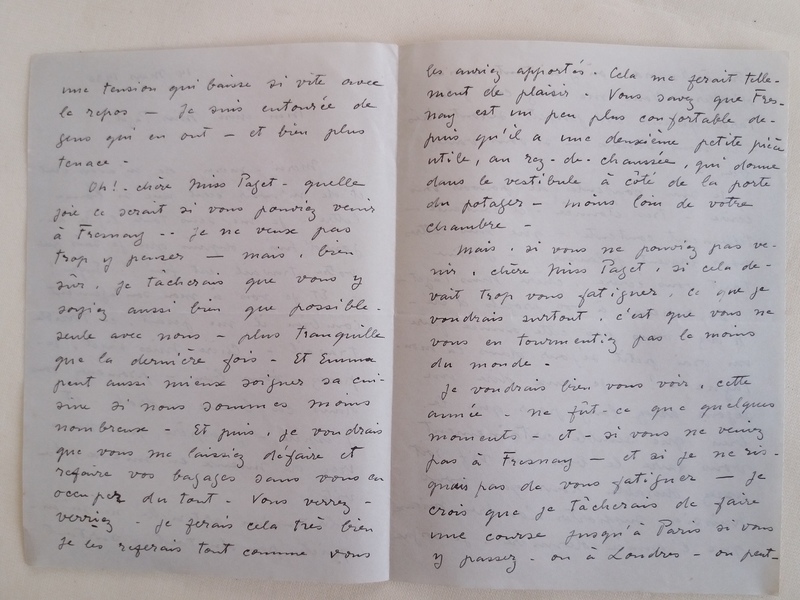 une tension qui baisse si vite avec
le repos — Je suis entourée de
gens qui en ont — et bien plus
tenace -
Oh! - chère Miss Paget - quelle
joie ce serait si vous pouviez venir
à Fresnay -- Je ne veux pas
trop y penser — mais, bien
sûr, je tâcherais que vous y
soyiez aussi bien que possible -
seule avec nous - plus tranquille
que la dernière fois - Et Emma
peut aussi mieux soigner sa cui-
sine si nous sommes moins
nombreuse - Et puis, je voudrais
que vous me laissiez défaire et
refaire vos bagages sans vous en
occuper du tout - Vous verrez -
verriez - je ferais cela très bien
Je les referais tout comme vous
les auriez apportés. Cela me ferait telle-
ment de plaisir. Vous savez que Fres-
nay est un peu plus confortable de-
puis qu'il a une deuxième petite pièce
utile, au rez-de-chaussée, qui donne
dans le vestibule à côté de la porte
du potager - moins loin de votre
chambre -
Mais, si vous ne pouviez pas ve-
nir, chère Miss Paget, si cela de-
vait trop vous fatiguer, ce que je
voudrais surtout, c'est que vous ne
vous en tourmentiez pas le moins
du monde -
Je voudrais bien vous voir, cette
année - ne fût-ce que quelques
moments - et - si vous ne veniez
pas à Fresnay — et si je ne ris-
quais pas de vous fatiguer — je
crois que je tâcherais de faire
une course jusqu'à Paris si vous
y passez - ou à Londres - ou peut-